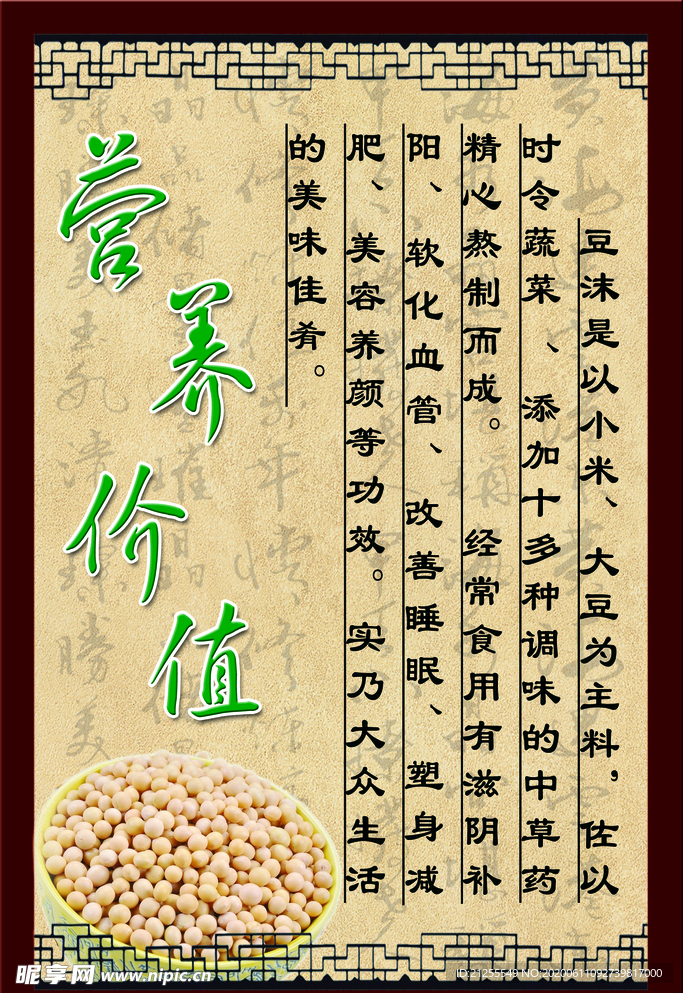 营养价值
豆沫是以小米、大豆为主料，佐以
时令蔬菜、添加十多种调味的中草药
精心熬制而成。经常食用有滋阴补
阳、软化血管、改善睡眠、塑身减
肥、美容养颜等功效。实乃大众生活
的美味佳肴。
昵享网 www.nipic.cn
ID:21255549 NO:20200611092739817000